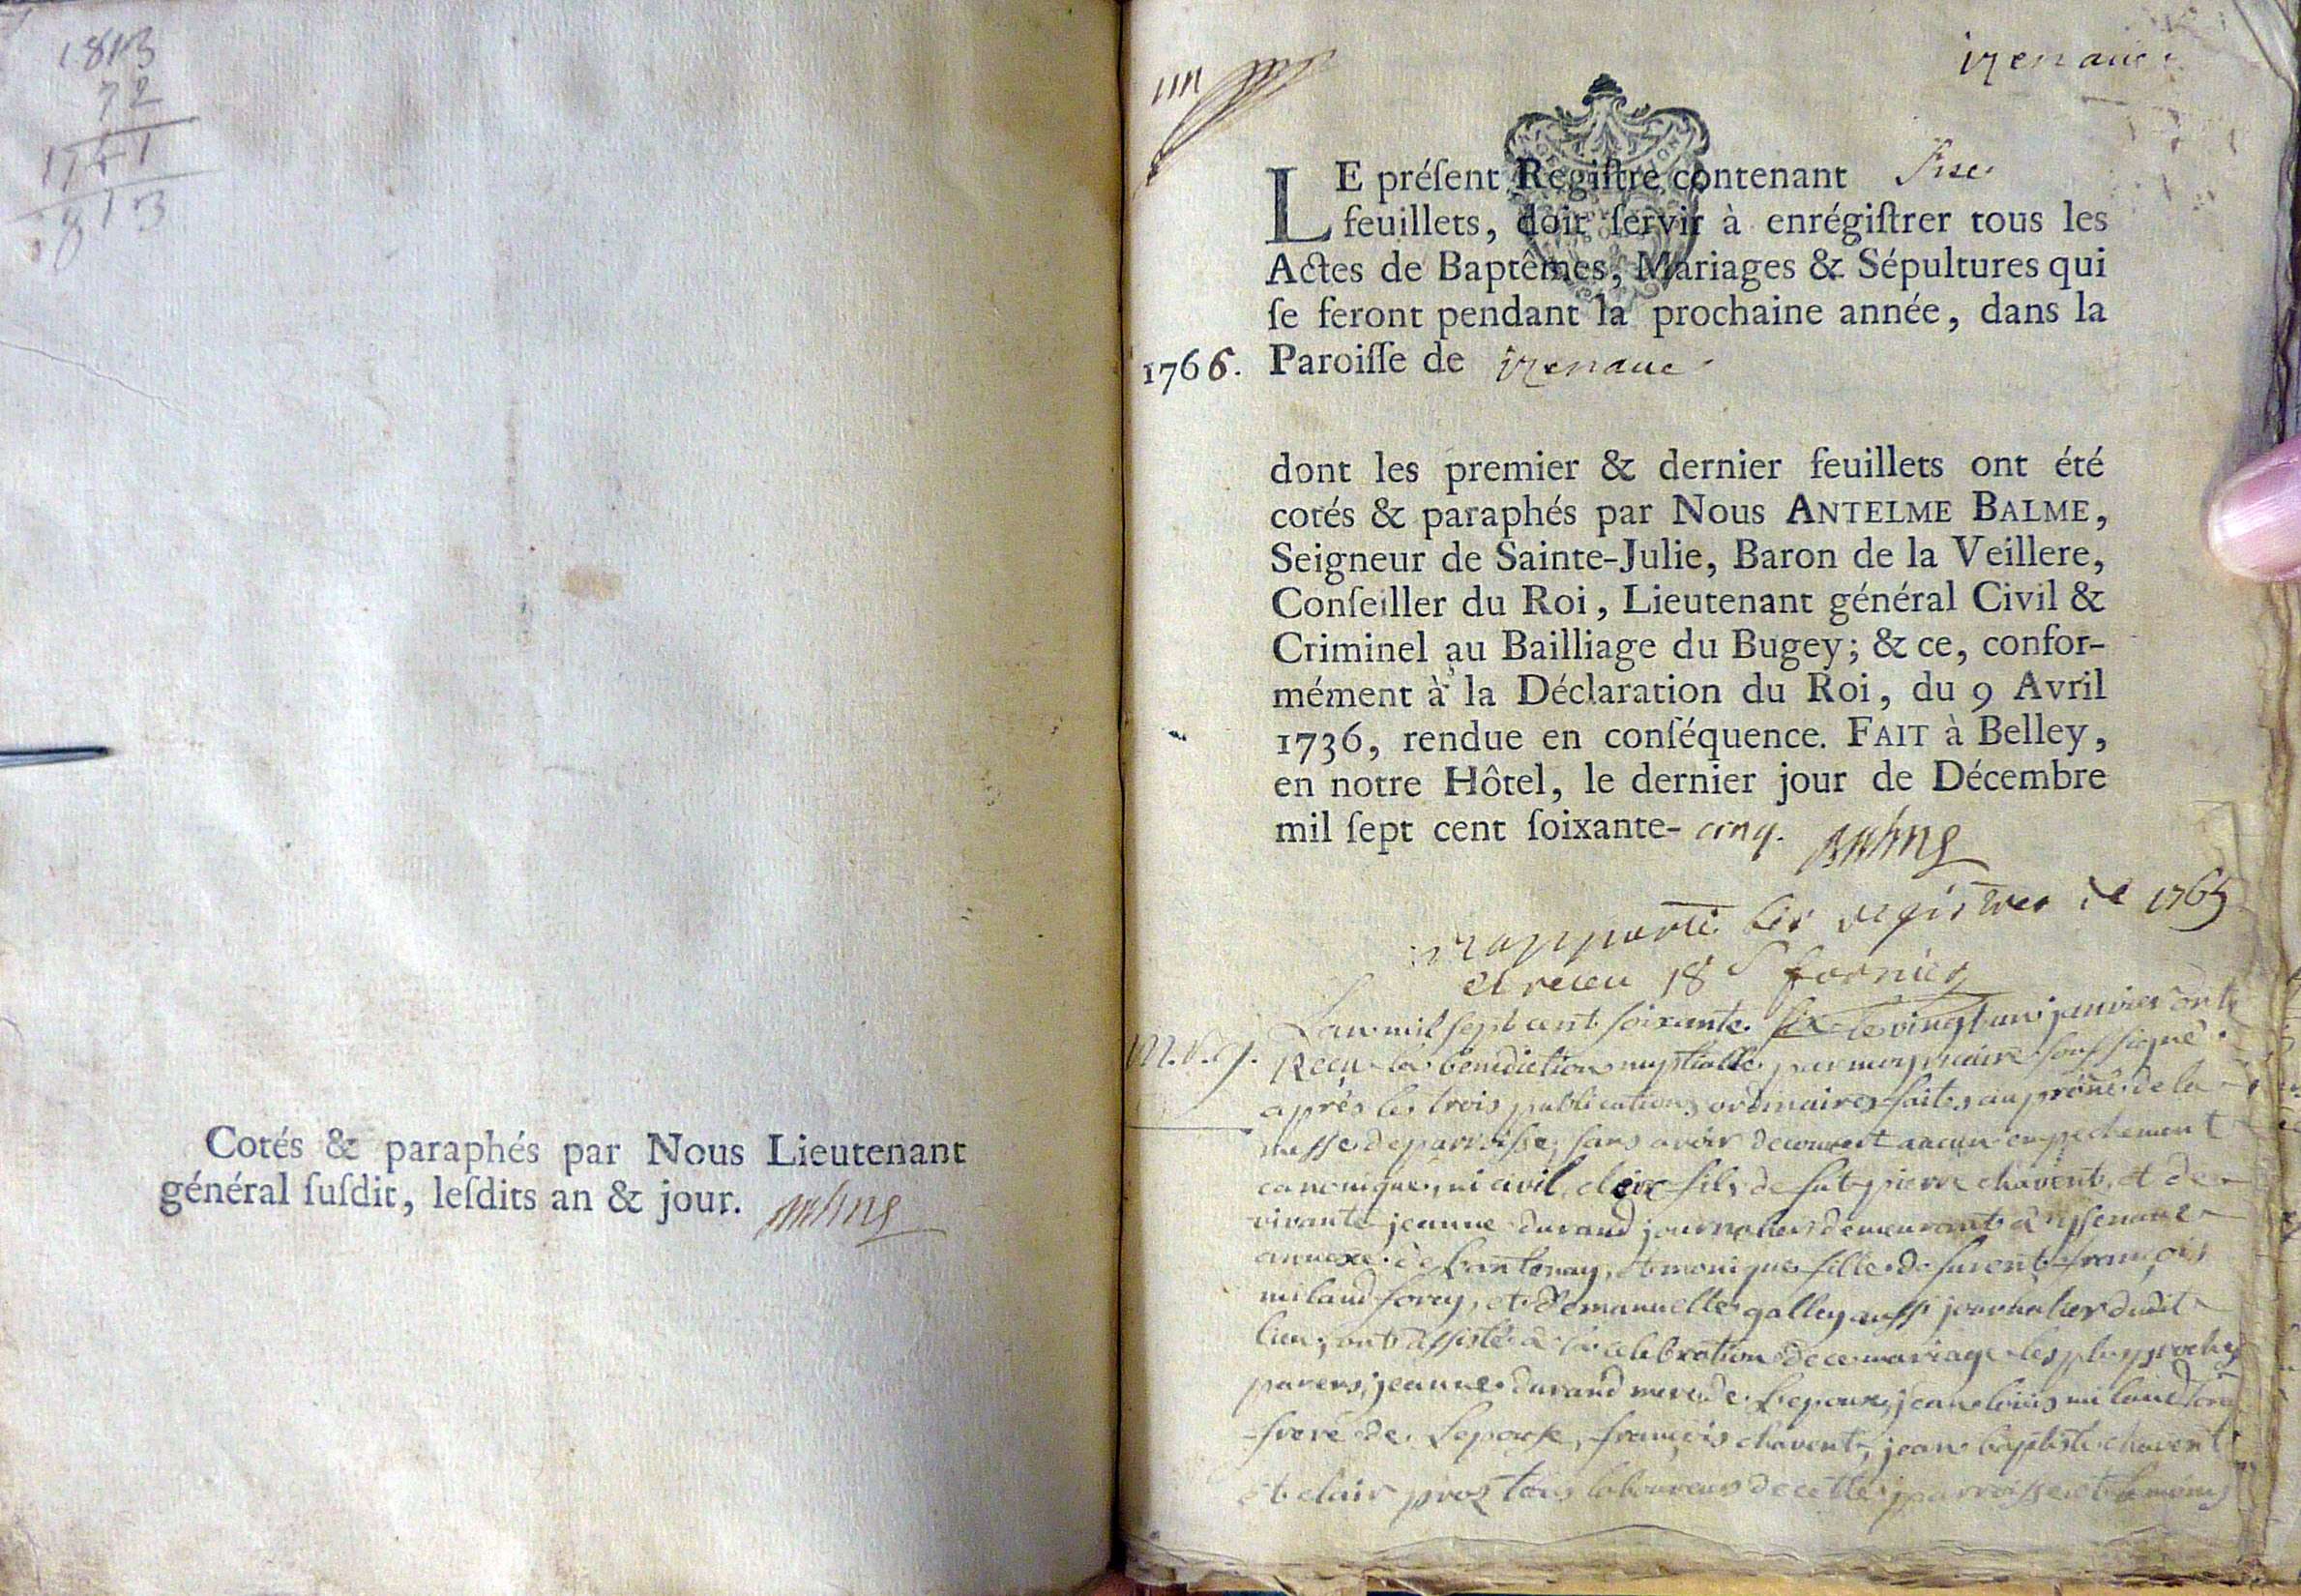 1813
72
1741
813
Cotés & paraphés par Nous Lieutenant
général ſuſdit, leſdits an & jour. Balme
izenaue
LE préſent Regiſtre contenant Sise
feuillets, doit ſervir à enrégiſtrer tous les
Actes de Baptêmes, Mariages & Sépultures qui
ſe feront pendant la prochaine année, dans la
1766. Paroiſſe de izenaue
dont les premier & dernier feuillets ont été
cotés & paraphés par Nous ANTELME BALME,
Seigneur de Sainte-Julie, Baron de la Veillere,
Conſeiller du Roi, Lieutenant général Civil &
Criminel au Bailliage du Bugey; & ce, confor-
mément à la Déclaration du Roi, du 9 Avril
1736, rendue en conſéquence. FAIT à Belley,
en notre Hôtel, le dernier jour de Décembre
mil ſept cent ſoixante- cinq. Balme
rapporté les registres de 1765
et receu 18 s fornier
L'an mil sept cent soixante six le vingt un janvier ont
Reçu la benediction nuptialle par moy vicaire soussigné
après les trois publications ordinaires faites au prône de la
messe de parroisse, sans avoir decouvert aucun empechement
canonique, ni civil, claire fils de fut pierre chavent, et de
vivante jeanne durand journalier demeurant à issenave
annexe de Lantenay, et monique fille de furent françois
miland forey, et d'emanuelle galley aussi journalier dudit
lieu; ont assisté à la celebration de ce mariage les plus proches
parens, jeanne durand mere de l'epoux, jean louis miland
frere de l'epouse, françois chavent, jean baptiste chavent
et clair proz tous laboureurs de cette parroisse et temoins